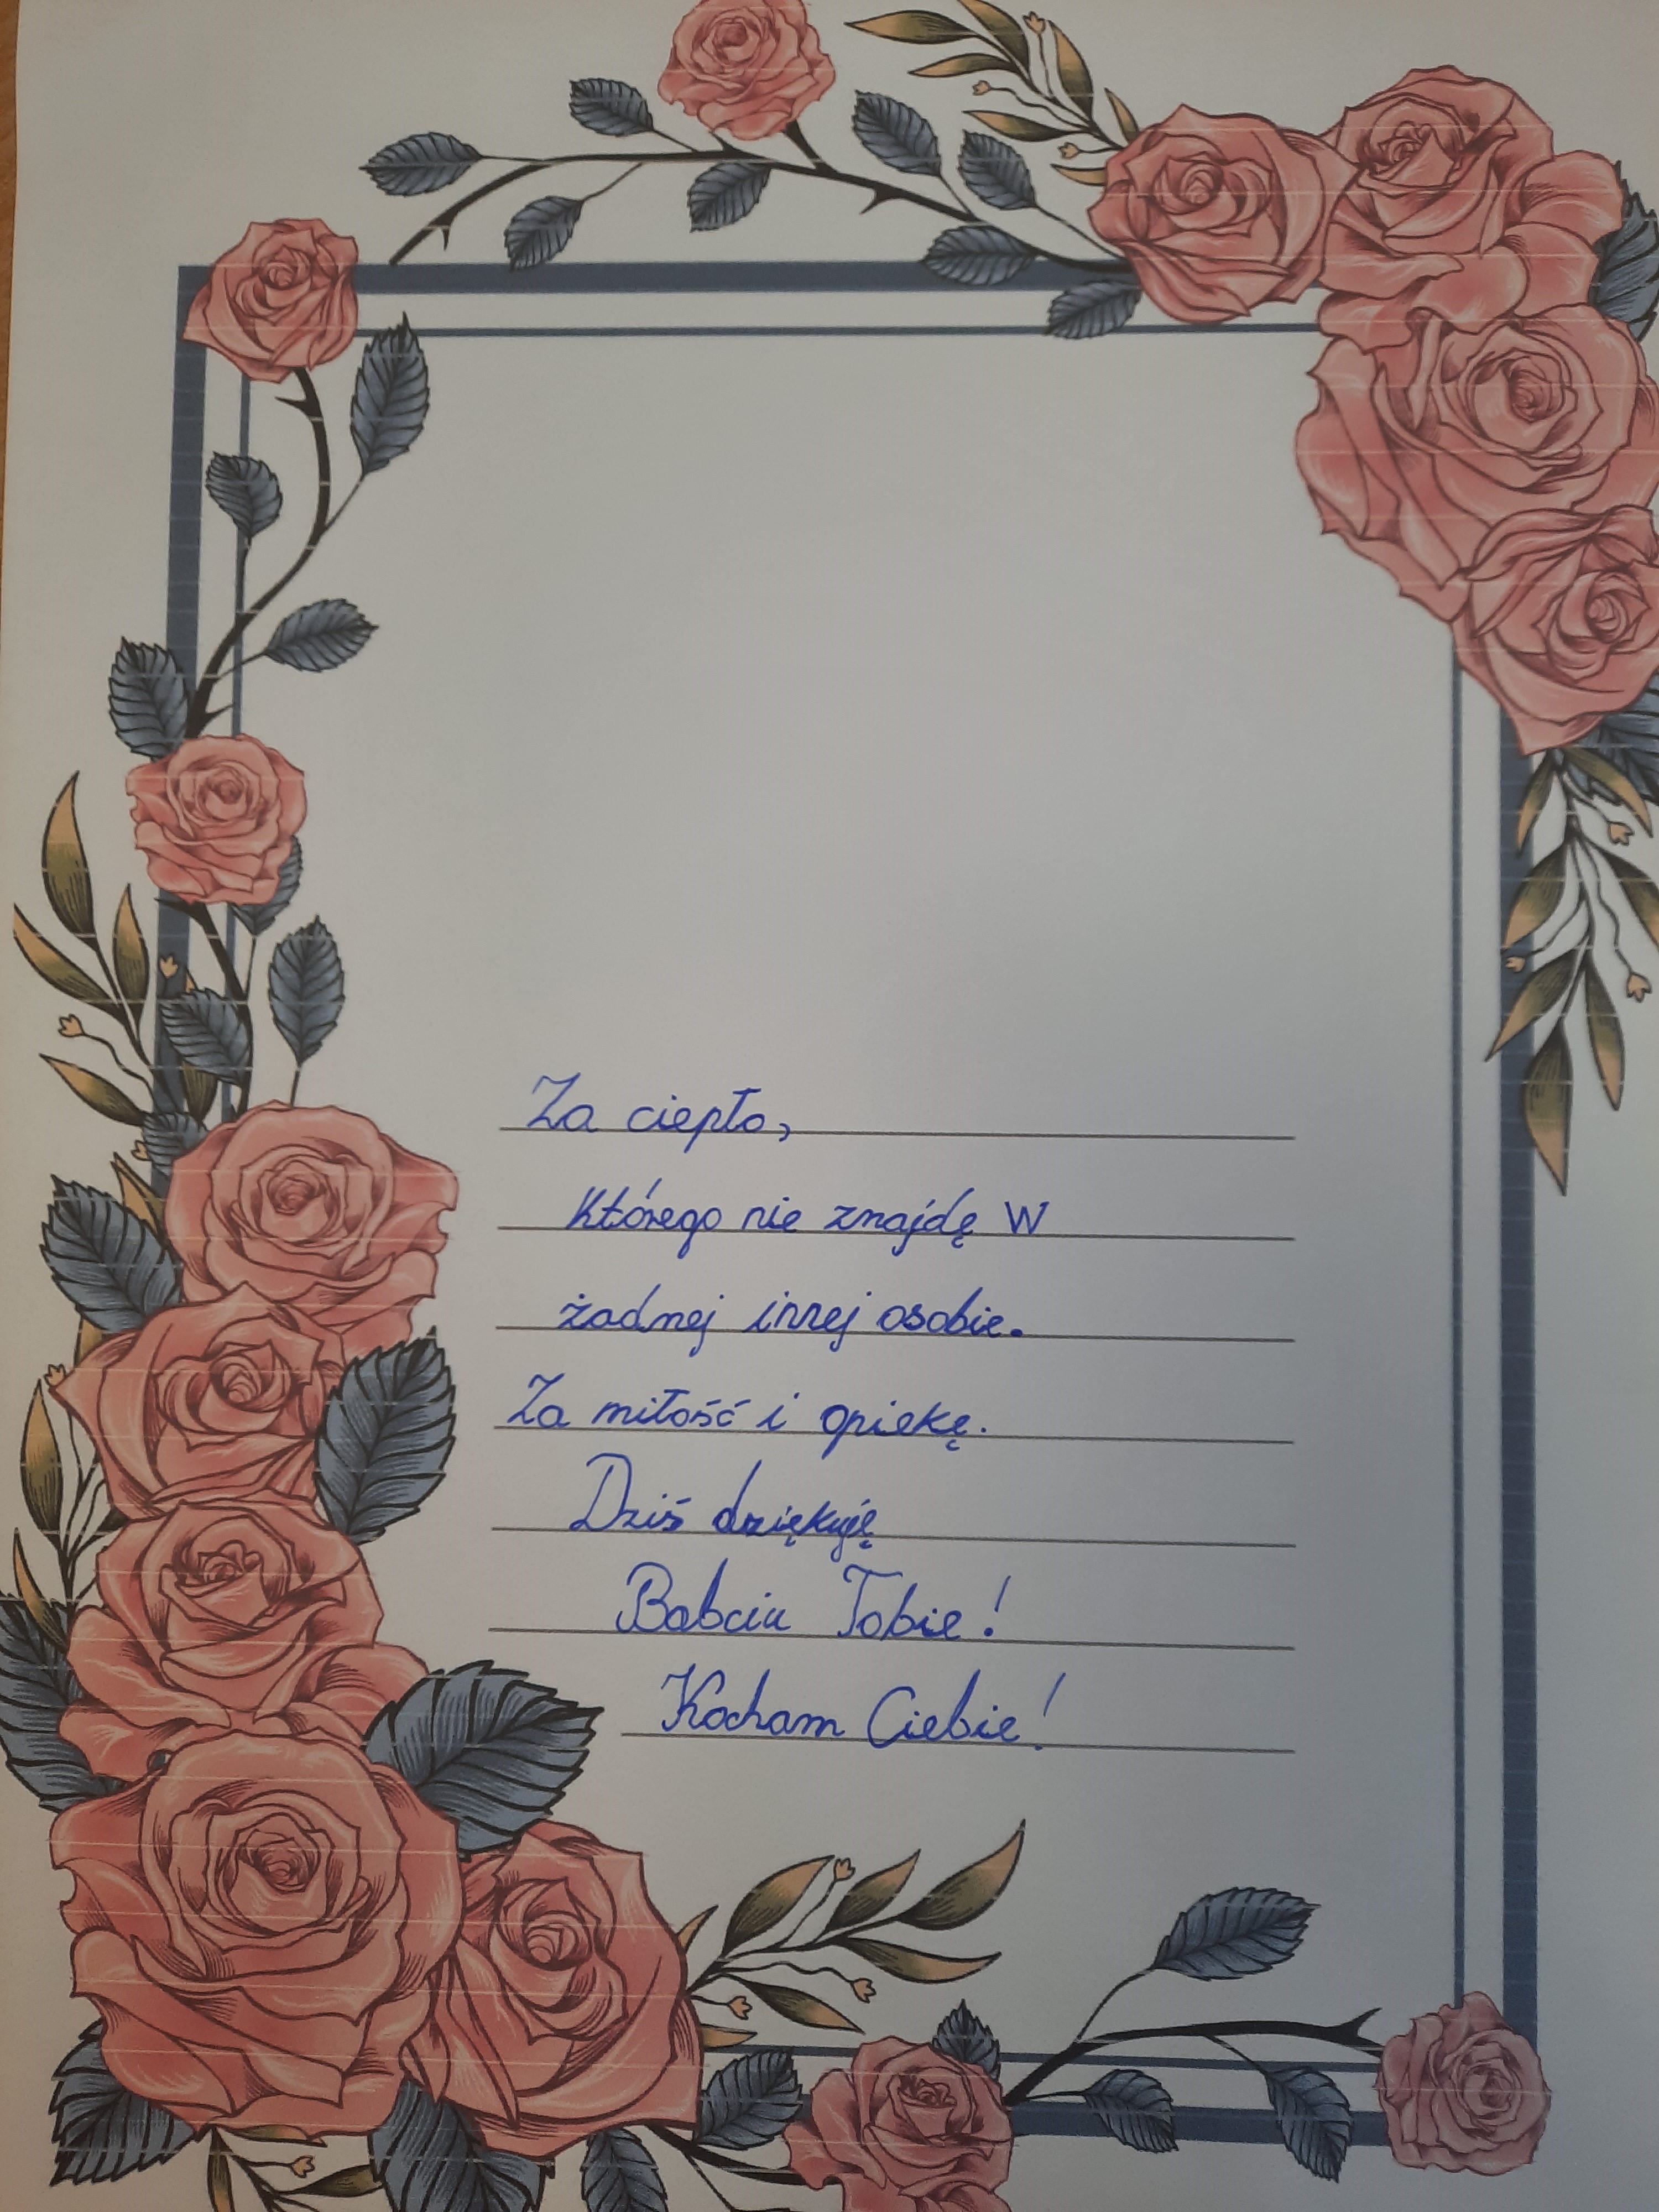 Za ciepło,
którego nie znajdę w
żadnej innej osobie.
Za miłość i opiekę.
Dziś dziękuję
Babciu Tobie!
Kocham Ciebie!